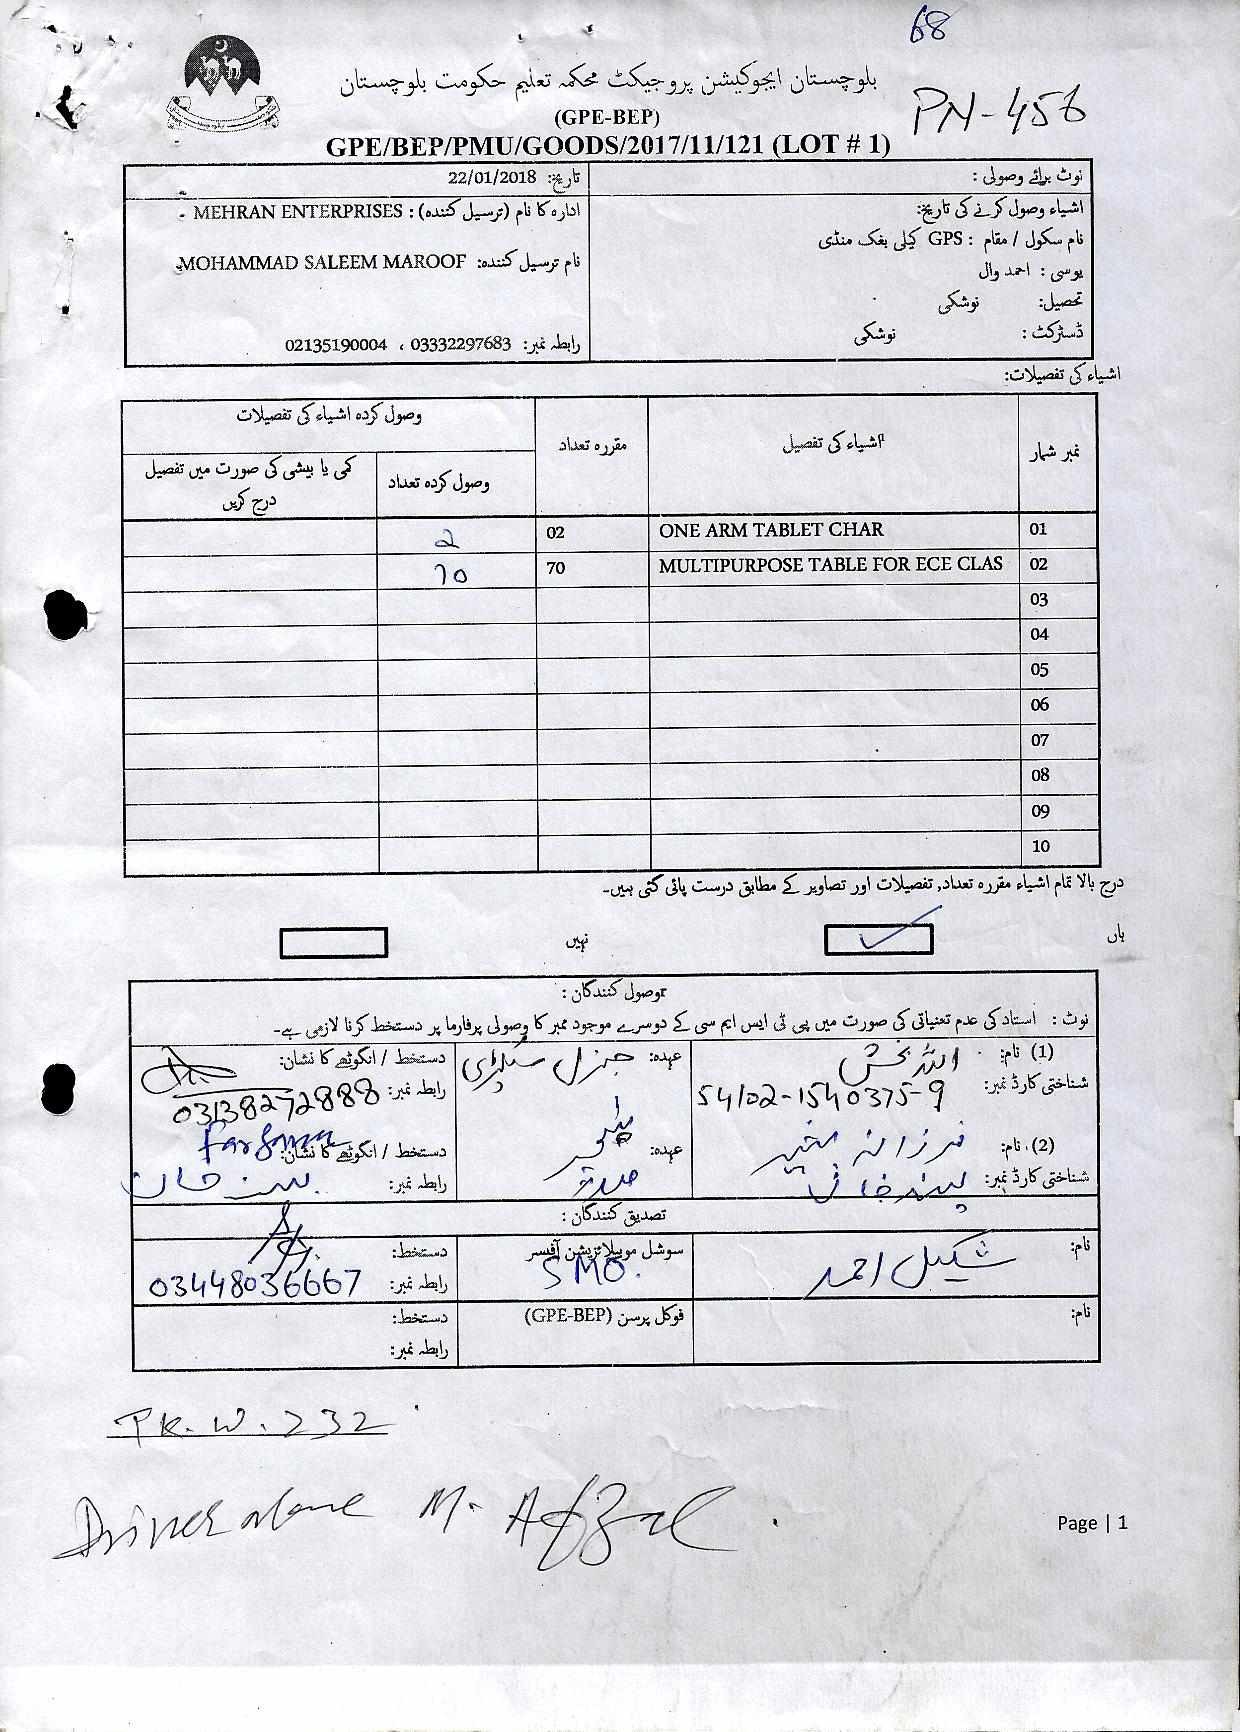 68
بلوچستان ایجوکیشن پروجیکٹ محکمہ تعلیم حکومت بلوچستان
(GPE-BEP)
PN-456
GPE/BEP/PMU/GOODS/2017/11/121 (LOT # 1)
نوٹ برائے وصولی :
تاریخ: 22/01/2018
اشیاء وصول کرنے کی تاریخ:
نام سکول / مقام : GPS کیلی بغک منڈی
یوسی : احمد وال
تحصیل: نوشکی
ڈسٹرکٹ : نوشکی
ادارہ کا نام (ترسیل کنندہ) : MEHRAN ENTERPRISES
نام ترسیل کنندہ: MOHAMMAD SALEEM MAROOF
رابطہ نمبر: 03332297683 ، 02135190004
اشیاء کی تفصیلات:
نمبر شمار اشیاء کی تفصیل مقررہ تعداد وصول کردہ اشیاء کی تفصیلات
وصول کردہ تعداد کمی یا بیشی کی صورت میں تفصیل درج کریں
01 ONE ARM TABLET CHAR 02 2
02 MULTIPURPOSE TABLE FOR ECE CLAS 70 70
03
04
05
06
07
08
09
10
درج بالا تمام اشیاء مقررہ تعداد, تفصیلات اور تصاویر کے مطابق درست پائی گئی ہیں۔
ہاں ✓ نہیں
وصول کنندگان :
نوٹ : استاد کی عدم تعنیاتی کی صورت میں پی ٹی ایس ایم سی کے دوسرے موجود ممبر کا وصولی پرفارما پر دستخط کرنا لازمی ہے۔
(1) نام: اللہ بخش عہدہ: جنرل سیکرٹری دستخط / انگوٹھے کا نشان:
شناختی کارڈ نمبر: 54102-1540375-9 رابطہ نمبر: 03138272888
(2) نام: فرزانہ عہدہ: دستخط / انگوٹھے کا نشان: Farzana
شناختی کارڈ نمبر: رابطہ نمبر:
تصدیق کنندگان :
نام: شکیل احمد سوشل موبیلائزیشن آفیسر SMO. دستخط:
رابطہ نمبر: 03448036667
نام: فوکل پرسن (GPE-BEP) دستخط:
رابطہ نمبر:
TK.W.232
Driver Name M. Afzal
Page | 1